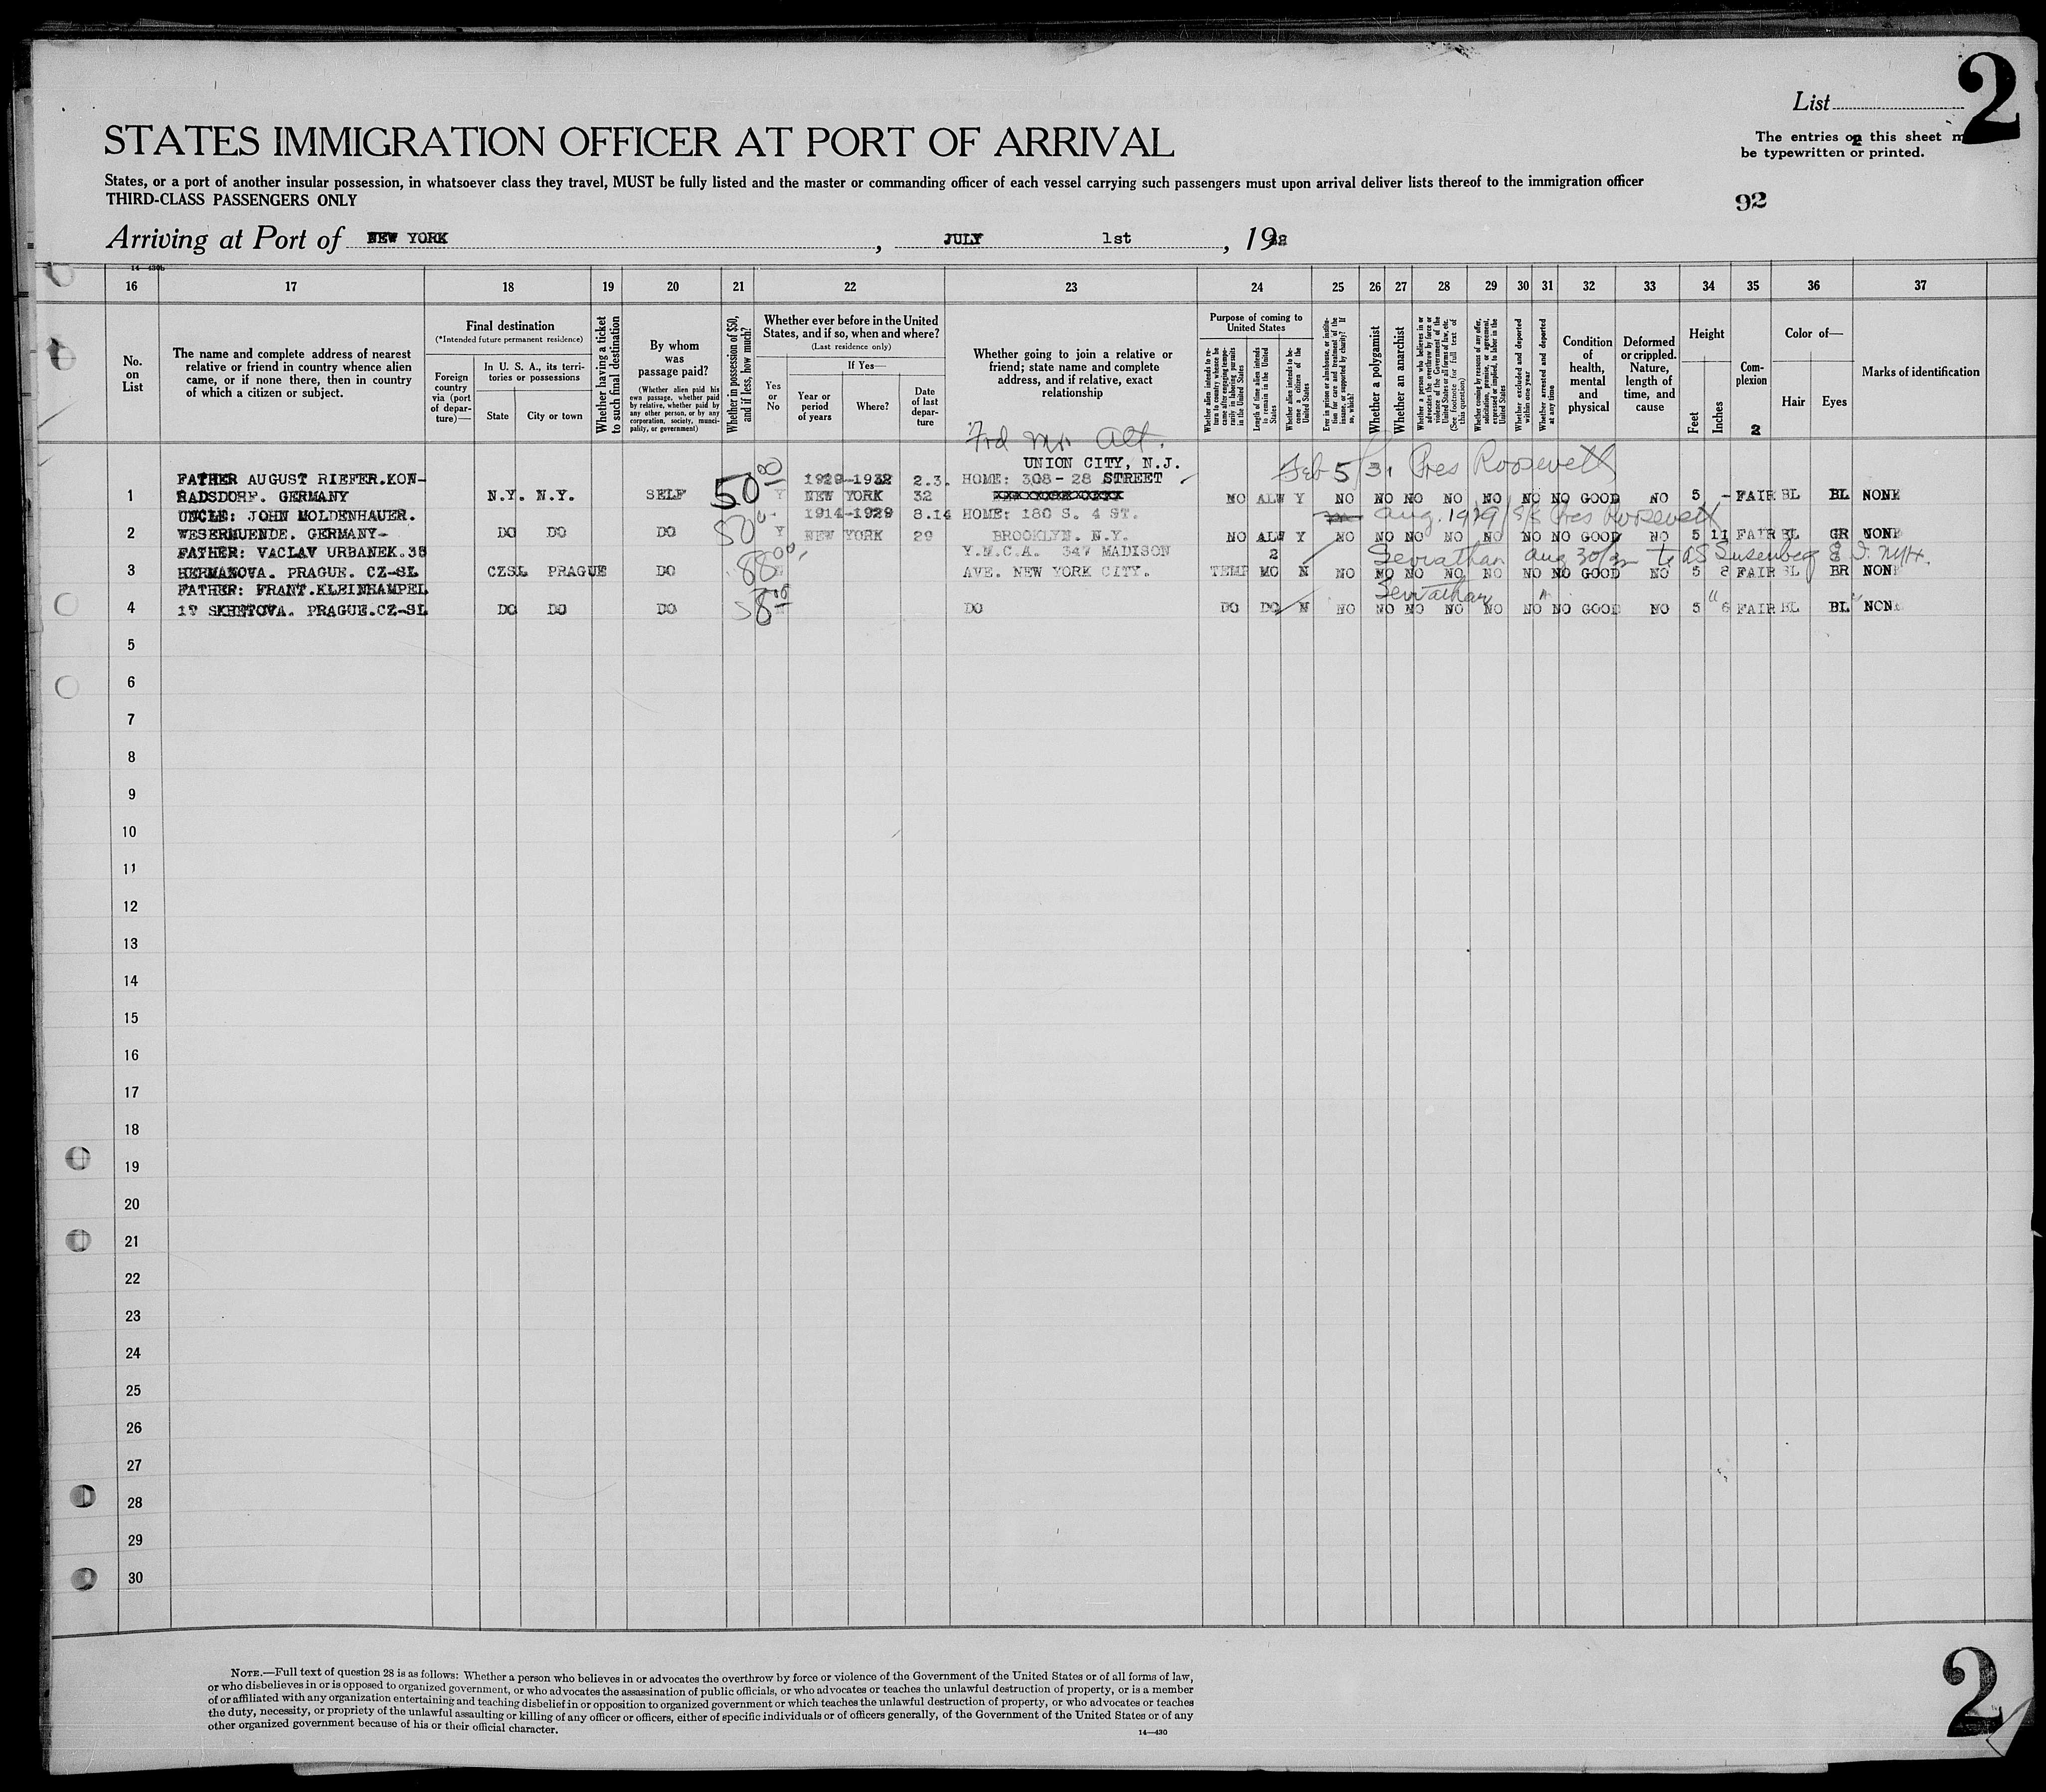 List
2
The entries on this sheet
be typewritten or printed.
2
STATES IMMIGRATION OFFICER AT PORT OF ARRIVAL
States, or a port of another insular possession, in whatsoever class they travel, MUST be fully listed and the master or commanding officer of each vessel carrying such passengers must upon arrival deliver lists thereof to the immigration officer
THIRD-CLASS PASSENGERS ONLY
92
Arriving at Port of NEW YORK, JULY 1st, 1932
14—430b
16 17 18 19 20 21 22 23 24 25 26 27 28 29 30 31 32 33 34 35 36 37
No. on List
The name and complete address of nearest relative or friend in country whence alien came, or if none there, then in country of which a citizen or subject.
Final destination
(*Intended future permanent residence)
Foreign country via (port of departure)—
In U. S. A., its territories or possessions
State
City or town
Whether having a ticket to such final destination
By whom was passage paid?
(Whether alien paid his own passage, whether paid by relative, whether paid by any other person, or by any corporation, society, municipality, or government)
Whether in possession of $50, and if less, how much?
Whether ever before in the United States, and if so, when and where?
(Last residence only)
Yes or No
If Yes—
Year or period of years
Where?
Date of last departure
Whether going to join a relative or friend; state name and complete address, and if relative, exact relationship
Purpose of coming to United States
Whether alien intends to return to country whence he came after engaging temporarily in laboring pursuits in the United States
Length of time alien intends to remain in the United States
Whether alien intends to become a citizen of the United States
Ever in prison or almshouse, or institution for care and treatment of the insane, or supported by charity? If so, which?
Whether a polygamist
Whether an anarchist
Whether a person who believes in or advocates the overthrow by force or violence of the Government of the United States or all forms of law, etc. (See footnote for full text of this question)
Whether coming by reasons of any offer, solicitation, promise, or agreement, expressed or implied, to labor in the United States
Whether excluded and deported within one year
Whether arrested and deported at any time
Condition of health, mental and physical
Deformed or crippled. Nature, length of time, and cause
Height
Feet
Inches
Complexion
2
Color of—
Hair
Eyes
Marks of identification
UNION CITY, N.J. Feb 5/31 Pres Roosevelt
FATHER AUGUST RIEFER.KON- 1929-1932 2.3. HOME: 308- 28 STREET
1 RADSDORF. GERMANY N.Y. N.Y. SELF 50 Y NEW YORK 32 NO ALW Y NO NO NO NO NO NO NO GOOD NO 5 - FAIR BL BL NONE
UNCLE: JOHN MOLDENHAUER. 1914-1929 8.14 HOME: 180 S. 4 ST. Aug. 1929 S/S Pres Roosevelt
2 WESERMUENDE. GERMANY- DO DO DO 50 Y NEW YORK 29 BROOKLYN. N.Y. NO ALW Y NO NO NO NO NO NO NO GOOD NO 5 11 FAIR BL GR NONE
FATHER: VACLAV URBANEK.35 Y.M.C.A. 347 MADISON 2 Leviathan Aug 30/32
3 HERMANOVA. PRAGUE. CZ-SL CZSL PRAGUE DO AVE. NEW YORK CITY. TEMP MO N NO NO NO NO NO NO NO GOOD NO 5 8 FAIR BL BR NONE
FATHER: FRANT.KLEINHAMPEL Leviathan " " "
4 17 SKRETOVA. PRAGUE.CZ-SL DO DO DO DO DO DO N NO NO NO NO NO NO NO GOOD NO 5 6 FAIR BL BL NONE
5
6
7
8
9
10
11
12
13
14
15
16
17
18
19
20
21
22
23
24
25
26
27
28
29
30
NOTE.—Full text of question 28 is as follows: Whether a person who believes in or advocates the overthrow by force or violence of the Government of the United States or of all forms of law,
or who disbelieves in or is opposed to organized government, or who advocates the assassination of public officials, or who advocates or teaches the unlawful destruction of property, or is a member
of or affiliated with any organization entertaining and teaching disbelief in or opposition to organized government or which teaches the unlawful destruction of property, or who advocates or teaches
the duty, necessity, or propriety of the unlawful assaulting or killing of any officer or officers, either of specific individuals or of officers generally, of the Government of the United States or of any
other organized government because of his or their official character.
14—430
2